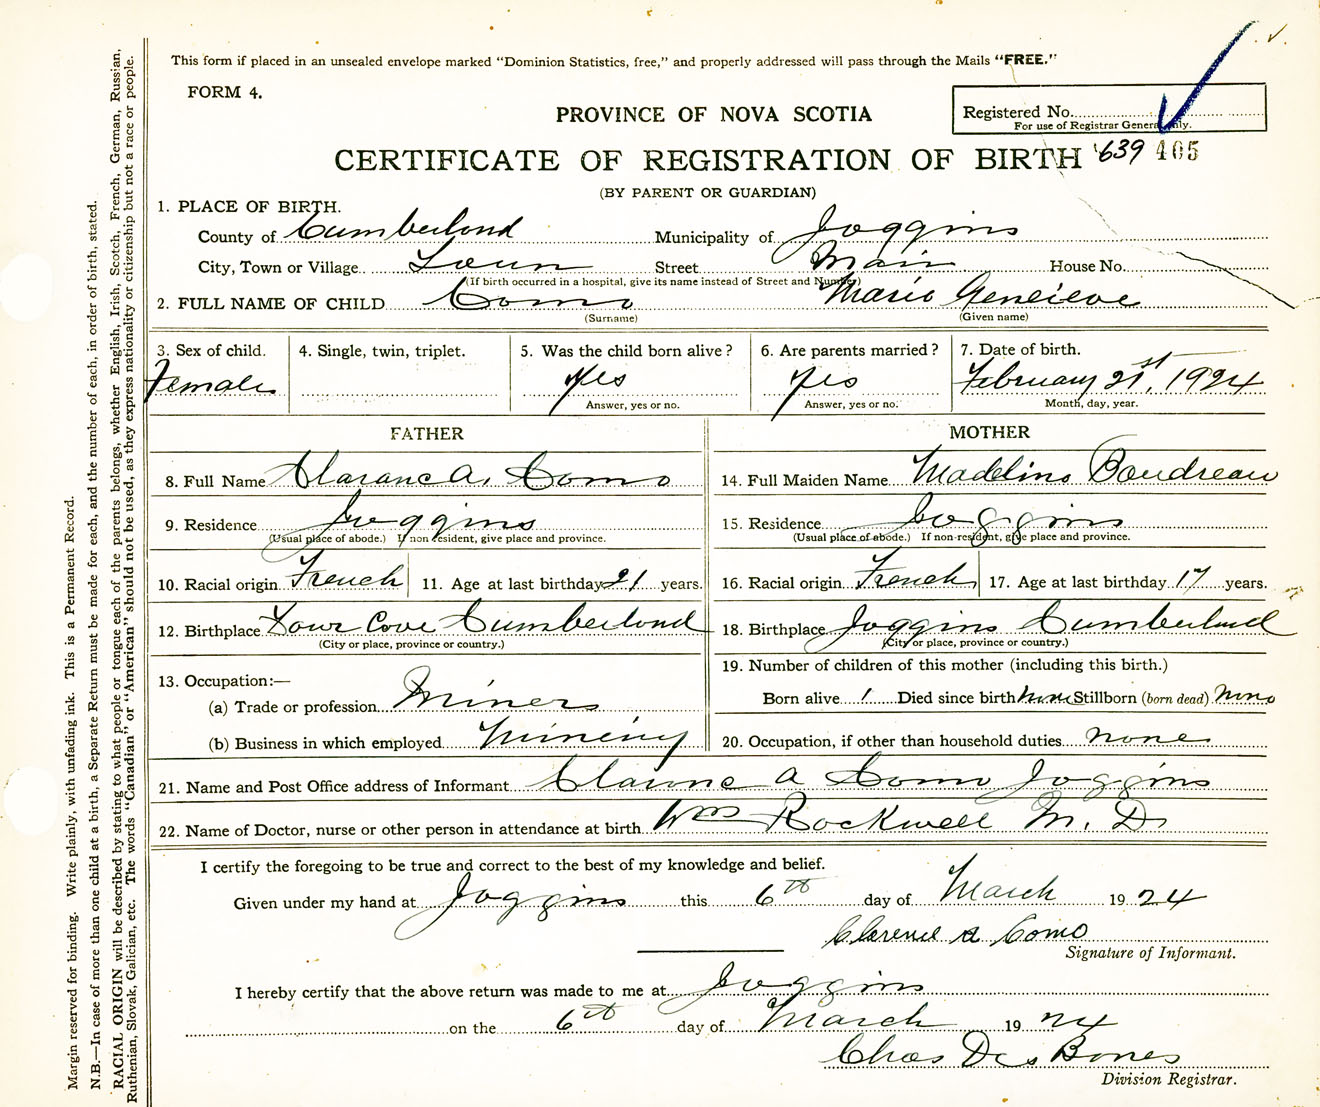 This form if placed in an unsealed envelope marked "Dominion Statistics, free," and properly addressed will pass through the Mails "FREE."
FORM 4.
PROVINCE OF NOVA SCOTIA
Registered No.
For use of Registrar General only.
CERTIFICATE OF REGISTRATION OF BIRTH 639 405
(BY PARENT OR GUARDIAN)
1. PLACE OF BIRTH.
County of Cumberland Municipality of Joggins
City, Town or Village Town Street Main House No.
(If birth occurred in a hospital, give its name instead of Street and Number)
2. FULL NAME OF CHILD Como Marie Genieve
(Surname) (Given name)
3. Sex of child. 4. Single, twin, triplet. 5. Was the child born alive? 6. Are parents married? 7. Date of birth.
Female Yes Yes February 21st, 1924
Answer, yes or no. Answer, yes or no. Month, day, year.
FATHER MOTHER
8. Full Name Clarance A. Como 14. Full Maiden Name Madeline Boudreau
9. Residence Joggins 15. Residence Joggins
(Usual place of abode.) If non resident, give place and province. (Usual place of abode.) If non-resident, give place and province.
10. Racial origin French 11. Age at last birthday 21 years. 16. Racial origin French 17. Age at last birthday 17 years.
12. Birthplace Cove Cumberland 18. Birthplace Joggins Cumberland
(City or place, province or country.) (City or place, province or country.)
13. Occupation:— 19. Number of children of this mother (including this birth.)
(a) Trade or profession Miner Born alive 1 Died since birth none Stillborn (born dead) none
(b) Business in which employed Mining 20. Occupation, if other than household duties none
21. Name and Post Office address of Informant Clarence A Como Joggins
22. Name of Doctor, nurse or other person in attendance at birth Wm Rockwell M. D.
I certify the foregoing to be true and correct to the best of my knowledge and belief.
Given under my hand at Joggins this 6th day of March 1924
Clarence A Como
Signature of Informant.
I hereby certify that the above return was made to me at Joggins
on the 6th day of March 1924
Chas Des Bones
Division Registrar.
Margin reserved for binding. Write plainly, with unfading ink. This is a Permanent Record.
N.B.—In case of more than one child at a birth, a Separate Return must be made for each, and the number of each, in order of birth, stated.
RACIAL ORIGIN will be described by stating to what people or tongue each of the parents belongs, whether English, Irish, Scotch, French, German, Russian,
Ruthenian, Slovak, Galician, etc. The words "Canadian" or "American" should not be used, as they express nationality or citizenship but not a race or people.